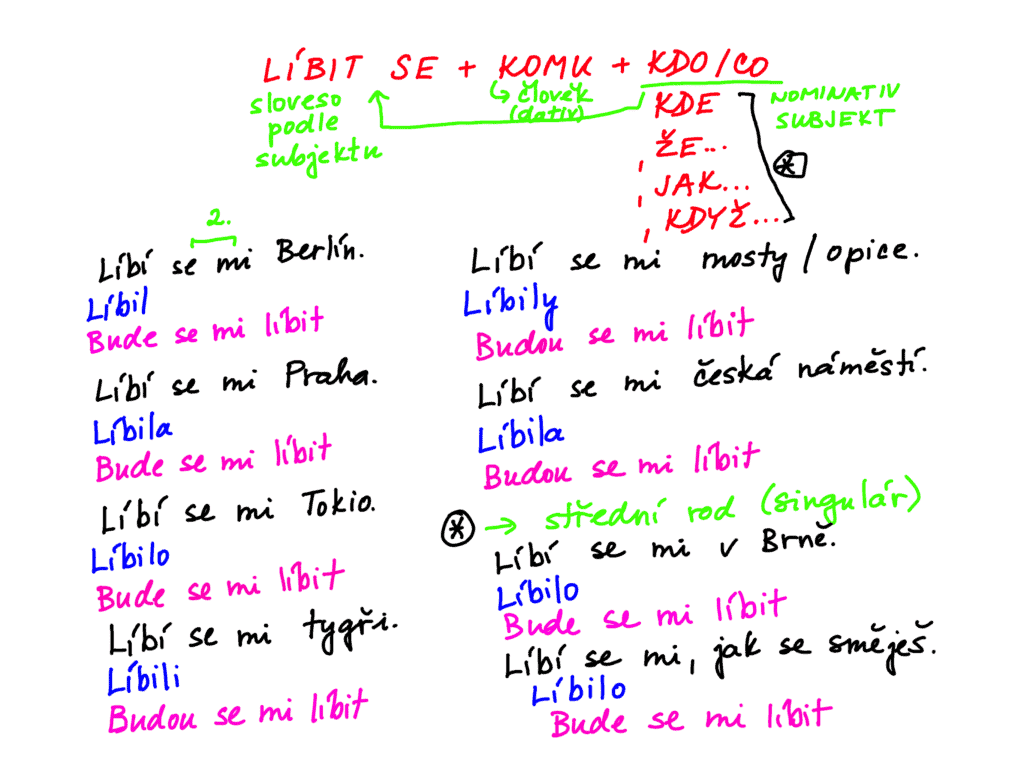 LÍBIT SE + KOMU + KDO/CO
sloveso
podle
subjektu
↳ člověk
(dativ)
KDE
, ŽE...
, JAK...
, KDYŽ...
NOMINATIV
SUBJEKT
*
2.
Líbí se mi Berlín.
Líbil
Bude se mi líbit
Líbí se mi Praha.
Líbila
Bude se mi líbit
Líbí se mi Tokio.
Líbilo
Bude se mi líbit
Líbí se mi tygři.
Líbili
Budou se mi líbit
Líbí se mi mosty / opice.
Líbily
Budou se mi líbit
Líbí se mi česká náměstí.
Líbila
Budou se mi líbit
* → střední rod (singulár)
Líbí se mi v Brně.
Líbilo
Bude se mi líbit
Líbí se mi, jak se směješ.
Líbilo
Bude se mi líbit